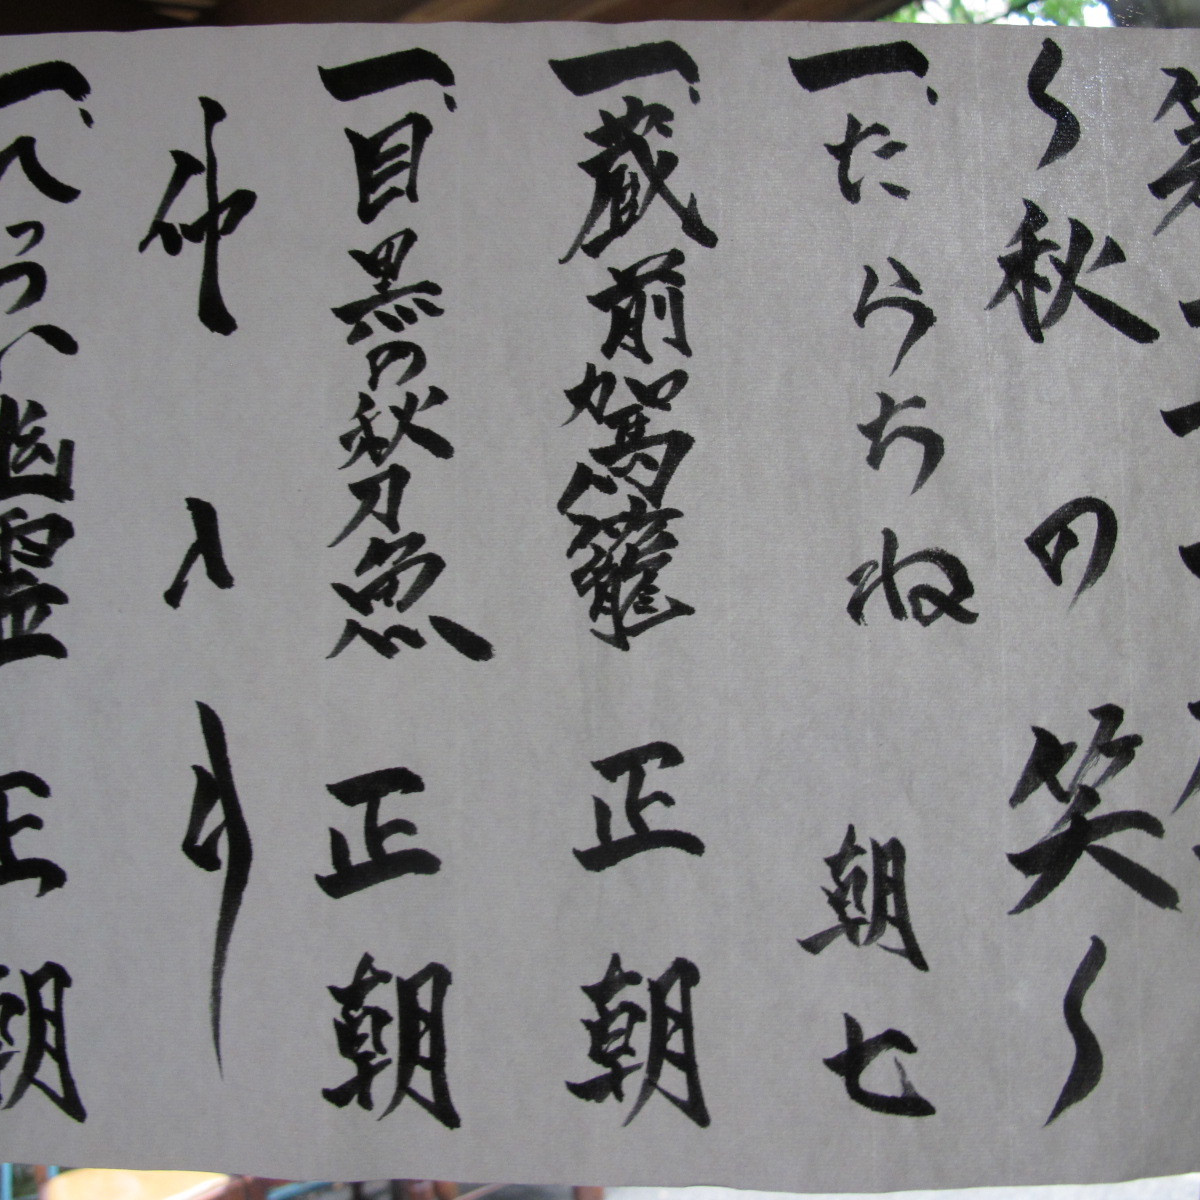 〜秋の笑〜
一、たらちね 朝七
一、蔵前駕籠 正朝
一、目黒の秋刀魚 正朝
仲入り
幽霊 正朝